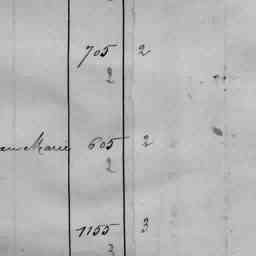 705 2
2
Marie 605 2
2
1155 3
3